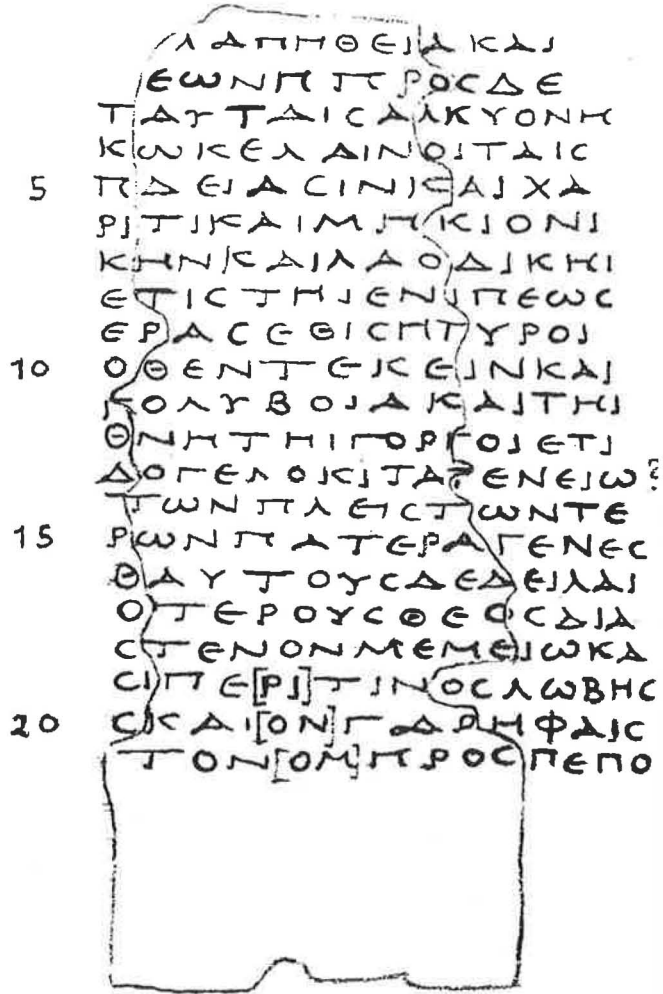 ΛΑΠΗΘΕΙΑΚΑΙ
ΕΩΝΠΠΡΟCΔΕ
ΤΑΥΤΑΙCΑΛΚΥΟΝΗ
ΚΩΚΕΛΑΙΝΟΙΤΑΙC
5 ΠΔΕΙΑCΙΝΙΚΑΙΧΑ
ΡΙΤΙΚΑΙΜΗΚΙΟΝΙ
ΚΗΝΚΑΙΛΑΟΔΙΚΗΙ
ΕΤΙCΤΗΙΕΝΙΠΕΩC
ΕΡΑCΕΘΙCΗΤΥΡΟΙ
10 ΟΘΕΝΤΕΚΕΙΝΚΑΙ
ΓΟΛΥΒΟΙΑΚΑΙΤΗΙ
ΘΝΗΤΗΙΓΟΡΓΟΙΕΤΙ
ΔΟΓΕΛΟΚΙΤΑ?ΕΝΕΙΩ?
ΤΩΝΠΛΕΙCΤΩΝΤΕ
15 ΡΩΝΠΑΤΕΡΑΓΕΝΕC
ΘΑΥΤΟΥCΔΕΔΕΙΛΑΙ
ΟΤΕΡΟΥCΘΕΟCΔΙΑ
CΤΕΝΟΝΜΕΜΕΙΩΚΑ
CΙΠΕ[ΡΙ]ΤΙΝΟCΛΩΒΗC
20 CΙΚΑΙ[ΟΝ]ΓΑΡΗΦΑΙC
ΤΟΝ[ΟΜ]ΠΡΟCΠΕΠΟ